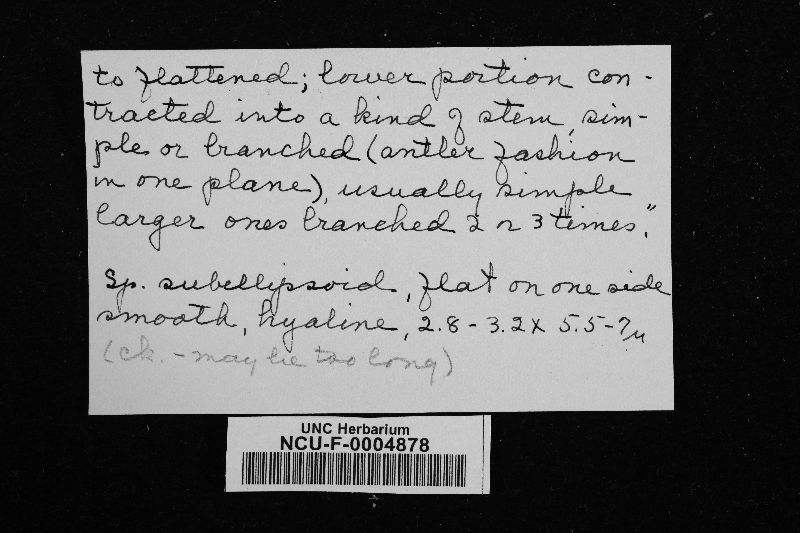 to flattened; lower portion con-
tracted into a kind of stem, sim-
ple or branched (antler fashion
in one plane), usually simple
larger ones branched 2 or 3 times."
Sp. subellipsoid, flat on one side
smooth, hyaline, 2.8-3.2 x 5.5-7µ
(ck. - may be too long)
UNC Herbarium
NCU-F-0004878